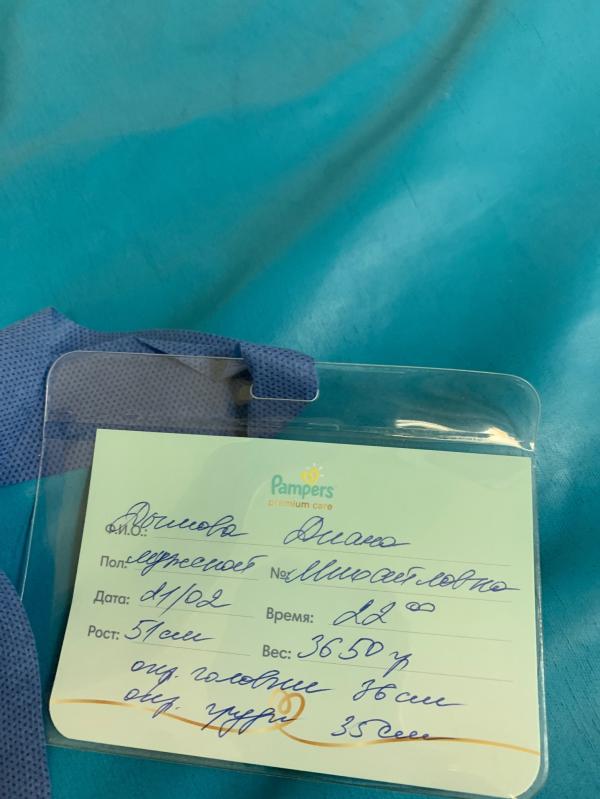 Pampers
premium care
Ф.И.О.: Дымова Диана
Пол: мужской №: Михайловна
Дата: 21/02 Время: 22 00
Рост: 51 см Вес: 3650 гр
окр. головки 36 см
окр. груди 35 см